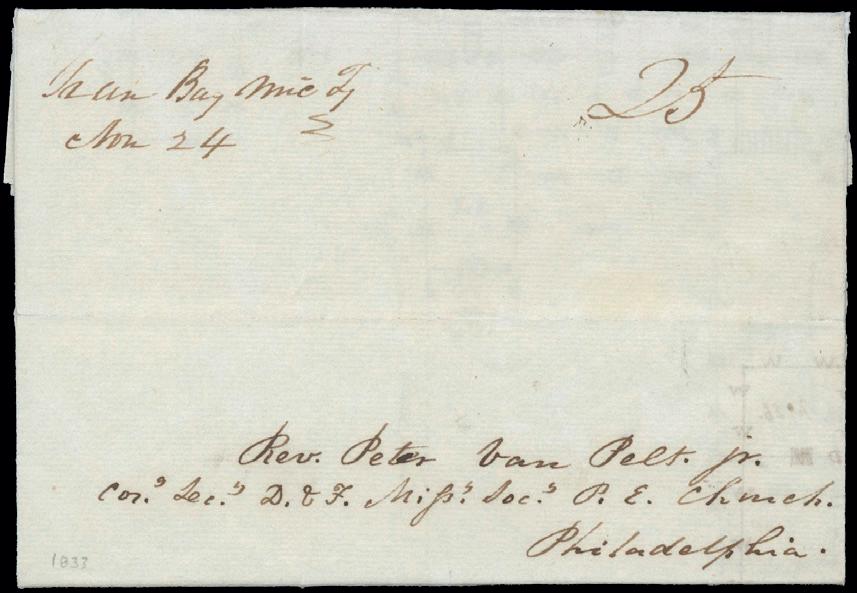 Green Bay Mic Ty
Nov 24
25
Rev. Peter Van Pelt. jr.
Cor.g Sec.y D. & F. Miss.y Soc.y P. E. Church.
Philadelphia.
1833